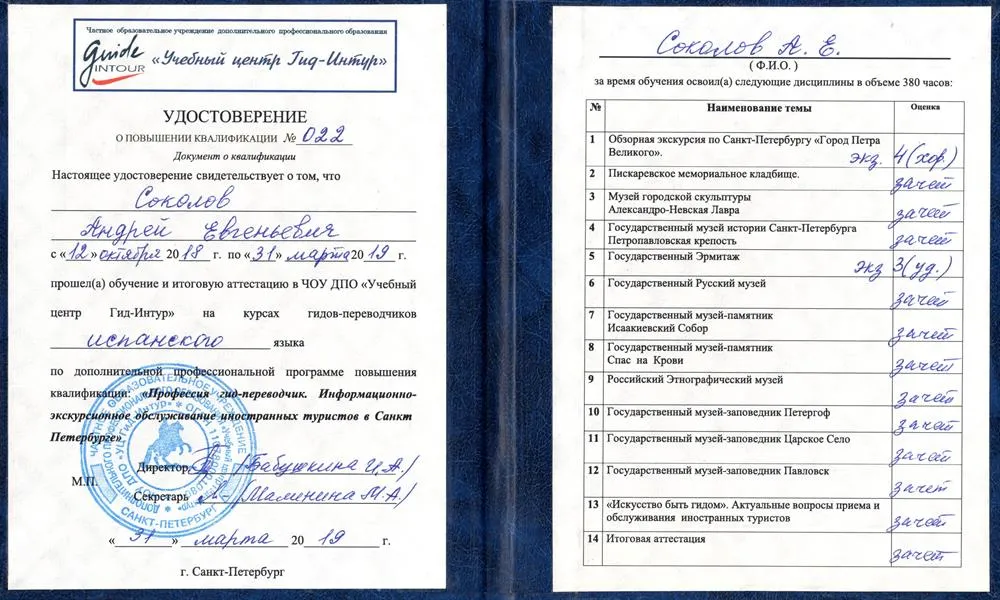 Частное образовательное учреждение дополнительного профессионального образования
guide
INTOUR
«Учебный центр Гид-Интур»
УДОСТОВЕРЕНИЕ
О ПОВЫШЕНИИ КВАЛИФИКАЦИИ № 022
Документ о квалификации
Настоящее удостоверение свидетельствует о том, что
Соколов
Андрей Евгеньевич
с «12» октября 2018 г. по «31» марта 2019 г.
прошел(а) обучение и итоговую аттестацию в ЧОУ ДПО «Учебный
центр Гид-Интур» на курсах гидов-переводчиков
испанского языка
по дополнительной профессиональной программе повышения
квалификации: «Профессия гид-переводчик. Информационно-
экскурсионное обслуживание иностранных туристов в Санкт
Петербурге»
Директор /Бабушкина И.А./
М.П.
Секретарь /Малинина М.А/
САНКТ-ПЕТЕРБУРГ
«31» марта 2019 г.
г. Санкт-Петербург
Соколов А. Е.
( Ф.И.О. )
за время обучения освоил(а) следующие дисциплины в объеме 380 часов:
№ Наименование темы Оценка
1 Обзорная экскурсия по Санкт-Петербургу «Город Петра
Великого». экз. 4 (хор.)
2 Пискаревское мемориальное кладбище. зачет
3 Музей городской скульптуры
Александро-Невская Лавра зачет
4 Государственный музей истории Санкт-Петербурга
Петропавловская крепость зачет
5 Государственный Эрмитаж экз 3 (уд.)
6 Государственный Русский музей зачет
7 Государственный музей-памятник
Исаакиевский Собор зачет
8 Государственный музей-памятник
Спас на Крови зачет
9 Российский Этнографический музей зачет
10 Государственный музей-заповедник Петергоф зачет
11 Государственный музей-заповедник Царское Село зачет
12 Государственный музей-заповедник Павловск зачет
13 «Искусство быть гидом». Актуальные вопросы приема и
обслуживания иностранных туристов зачет
14 Итоговая аттестация зачет